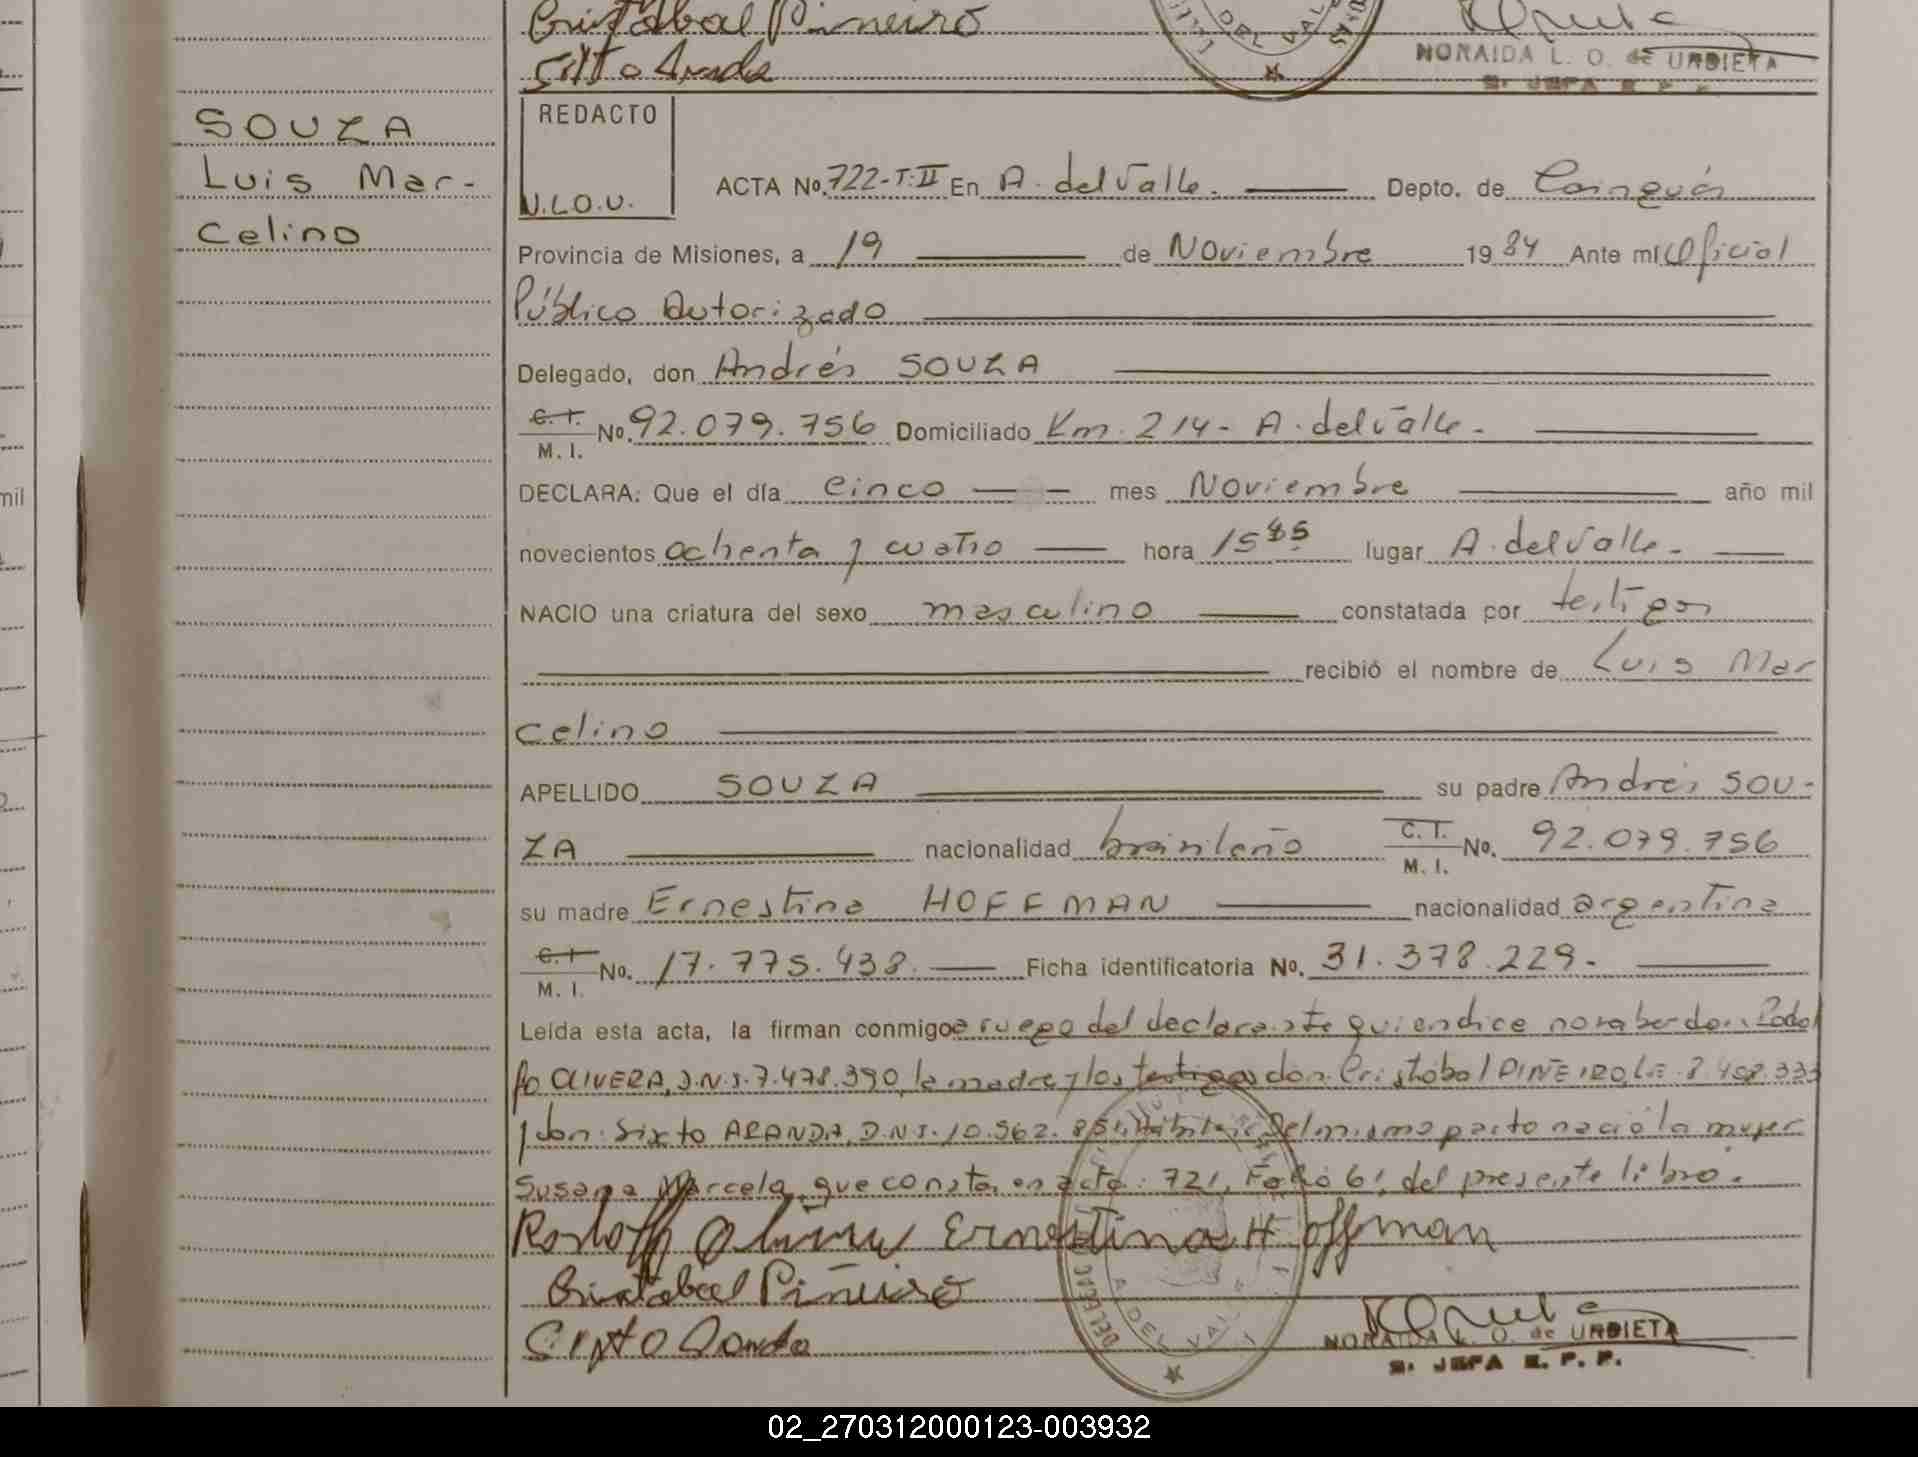 Cristóbal Piñeiro
NORAIDA L. O. de URDIETA
DEL VAL
REDACTO
SOUZA
Luis Mar-
celino
N.L.O.U.
ACTA No. 722-T.II En A. del Valle. Depto. de Cainguás
Provincia de Misiones, a 19 de Noviembre 1984 Ante mí Oficial
Público Autorizado
Delegado, don Andrés SOUZA
C. I. M. I. No. 92.079.756 Domiciliado Km. 214- A. del Valle.
DECLARA: Que el día cinco mes Noviembre año mil
novecientos ochenta y cuatro hora 15 lugar A. del Valle.
NACIO una criatura del sexo masculino constatada por testigos
recibió el nombre de Luis Mar
celino
APELLIDO SOUZA su padre Andrés SOU-
ZA nacionalidad brasileño C. I. M. I. No. 92.079.756
su madre Ernestina HOFFMAN nacionalidad argentina
C. I. M. I. No. 17.775.438. Ficha identificatoria No. 31.378.229.
Leída esta acta, la firman conmigo a ruego del declarante quien dice no saber don: Rodol
fo OLIVERA, D.N.I. 7.478.390, la madre y los testigos don: Cristóbal PIÑEIRO, L.E. 8.408.333
y don: Sixto ARANDA, D.N.I. 10.562.851. Del mismo parto nació la mujer
Susana Marcela, que consta en acta: 721, Folio 61 del presente libro.
Rodolfo Olivera Ernestina Hoffman
Cristobal Piñeiro
Sixto Aranda
A. DEL VALLE
NORAIDA L. O. de URDIETA
JEFA E. P. P.
mil
02_270312000123-003932